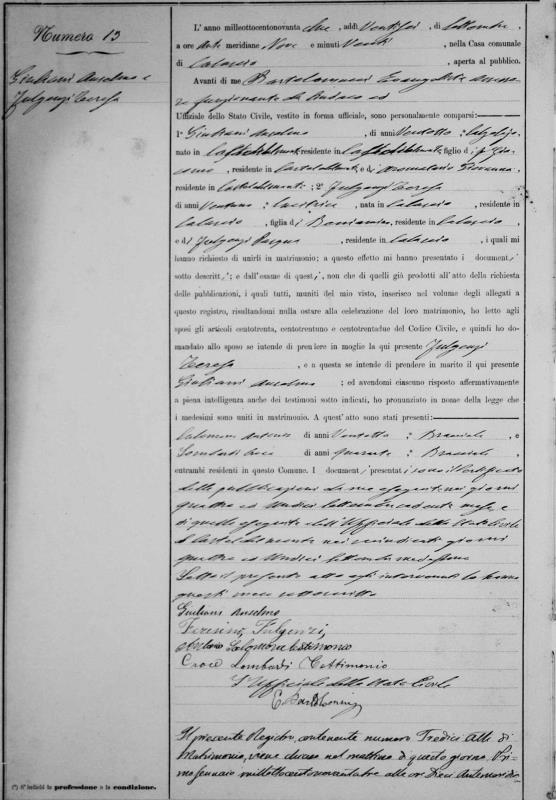 Numero 13
Giuliani Anselmo e
Fulgenzi Teresa
L' anno milleottocentonovanta due, addì Ventisei, di Settembre,
a ore ante meridiane Nove e minuti Venti, nella Casa comunale
di Calascio, aperta al pubblico.
Avanti di me Bartolomucci Evangelista Assesso-
re funzionante da Sindaco ed
Uffiziale dello Stato Civile, vestito in forma ufficiale, sono personalmente comparsi:
1° Giuliani Anselmo, di anni Ventotto;
nato in Casteldelmonte, residente in Casteldelmonte, figlio di
, residente in Casteldelmonte e di Giovanna
residente in Casteldelmonte; 2° Fulgenzi Teresa
di anni Ventuno; , nata in Calascio, residente in
Calascio, figlia di Beniamino, residente in Calascio
e di Fulgenzi , residente in Calascio, i quali mi
hanno richiesto di unirli in matrimonio; a questo effetto mi hanno presentato i document i
sotto descritti; e dall'esame di questi, non che di quelli già prodotti all'atto della richiesta
delle pubblicazioni, i quali tutti, muniti del mio visto, inserisco nel volume degli allegati a
questo registro, risultandomi nulla ostare alla celebrazione del loro matrimonio, ho letto agli
sposi gli articoli centotrenta, centotrentuno e centotrentadue del Codice Civile, e quindi ho do-
mandato allo sposo se intende di prendere in moglie la qui presente Fulgenzi
Teresa, e a questa se intende di prendere in marito il qui presente
Giuliani Anselmo; ed avendomi ciascuno risposto affermativamente
a piena intelligenza anche dei testimoni sotto indicati, ho pronunziato in nome della legge che
i medesimi sono uniti in matrimonio. A quest' atto sono stati presenti:
Salomone Antonio di anni Ventotto; Bracciale, e
Lombardi Croce di anni quaranta; Bracciale,
entrambi residenti in questo Comune. I document i presentati sono il Certificato
delle pubblicazioni da me eseguite nei giorni
quattro ed Undici Settembre andante mese e
di quelle eseguite dall'Uffiziale dello Stato Civile
di Casteldelmonte nei giorni
quattro ed Undici Settembre
Letto il presente atto agli intervenuti lo hanno
questi meco sottoscritto
Giuliani Anselmo
Teresina Fulgenzi,
Antonio Salomone testimonio
Croce Lombardi Testimonio
L'Uffiziale dello Stato Civile
E. Bartolomucci
Il presente Registro, contenente numero Tredici Atti di
Matrimonio, viene chiuso nel mattino di questo giorno Pri-
mo Gennaio milleottocentonovantatre alle ore Dieci
(*) S' indichi la professione o la condizione.